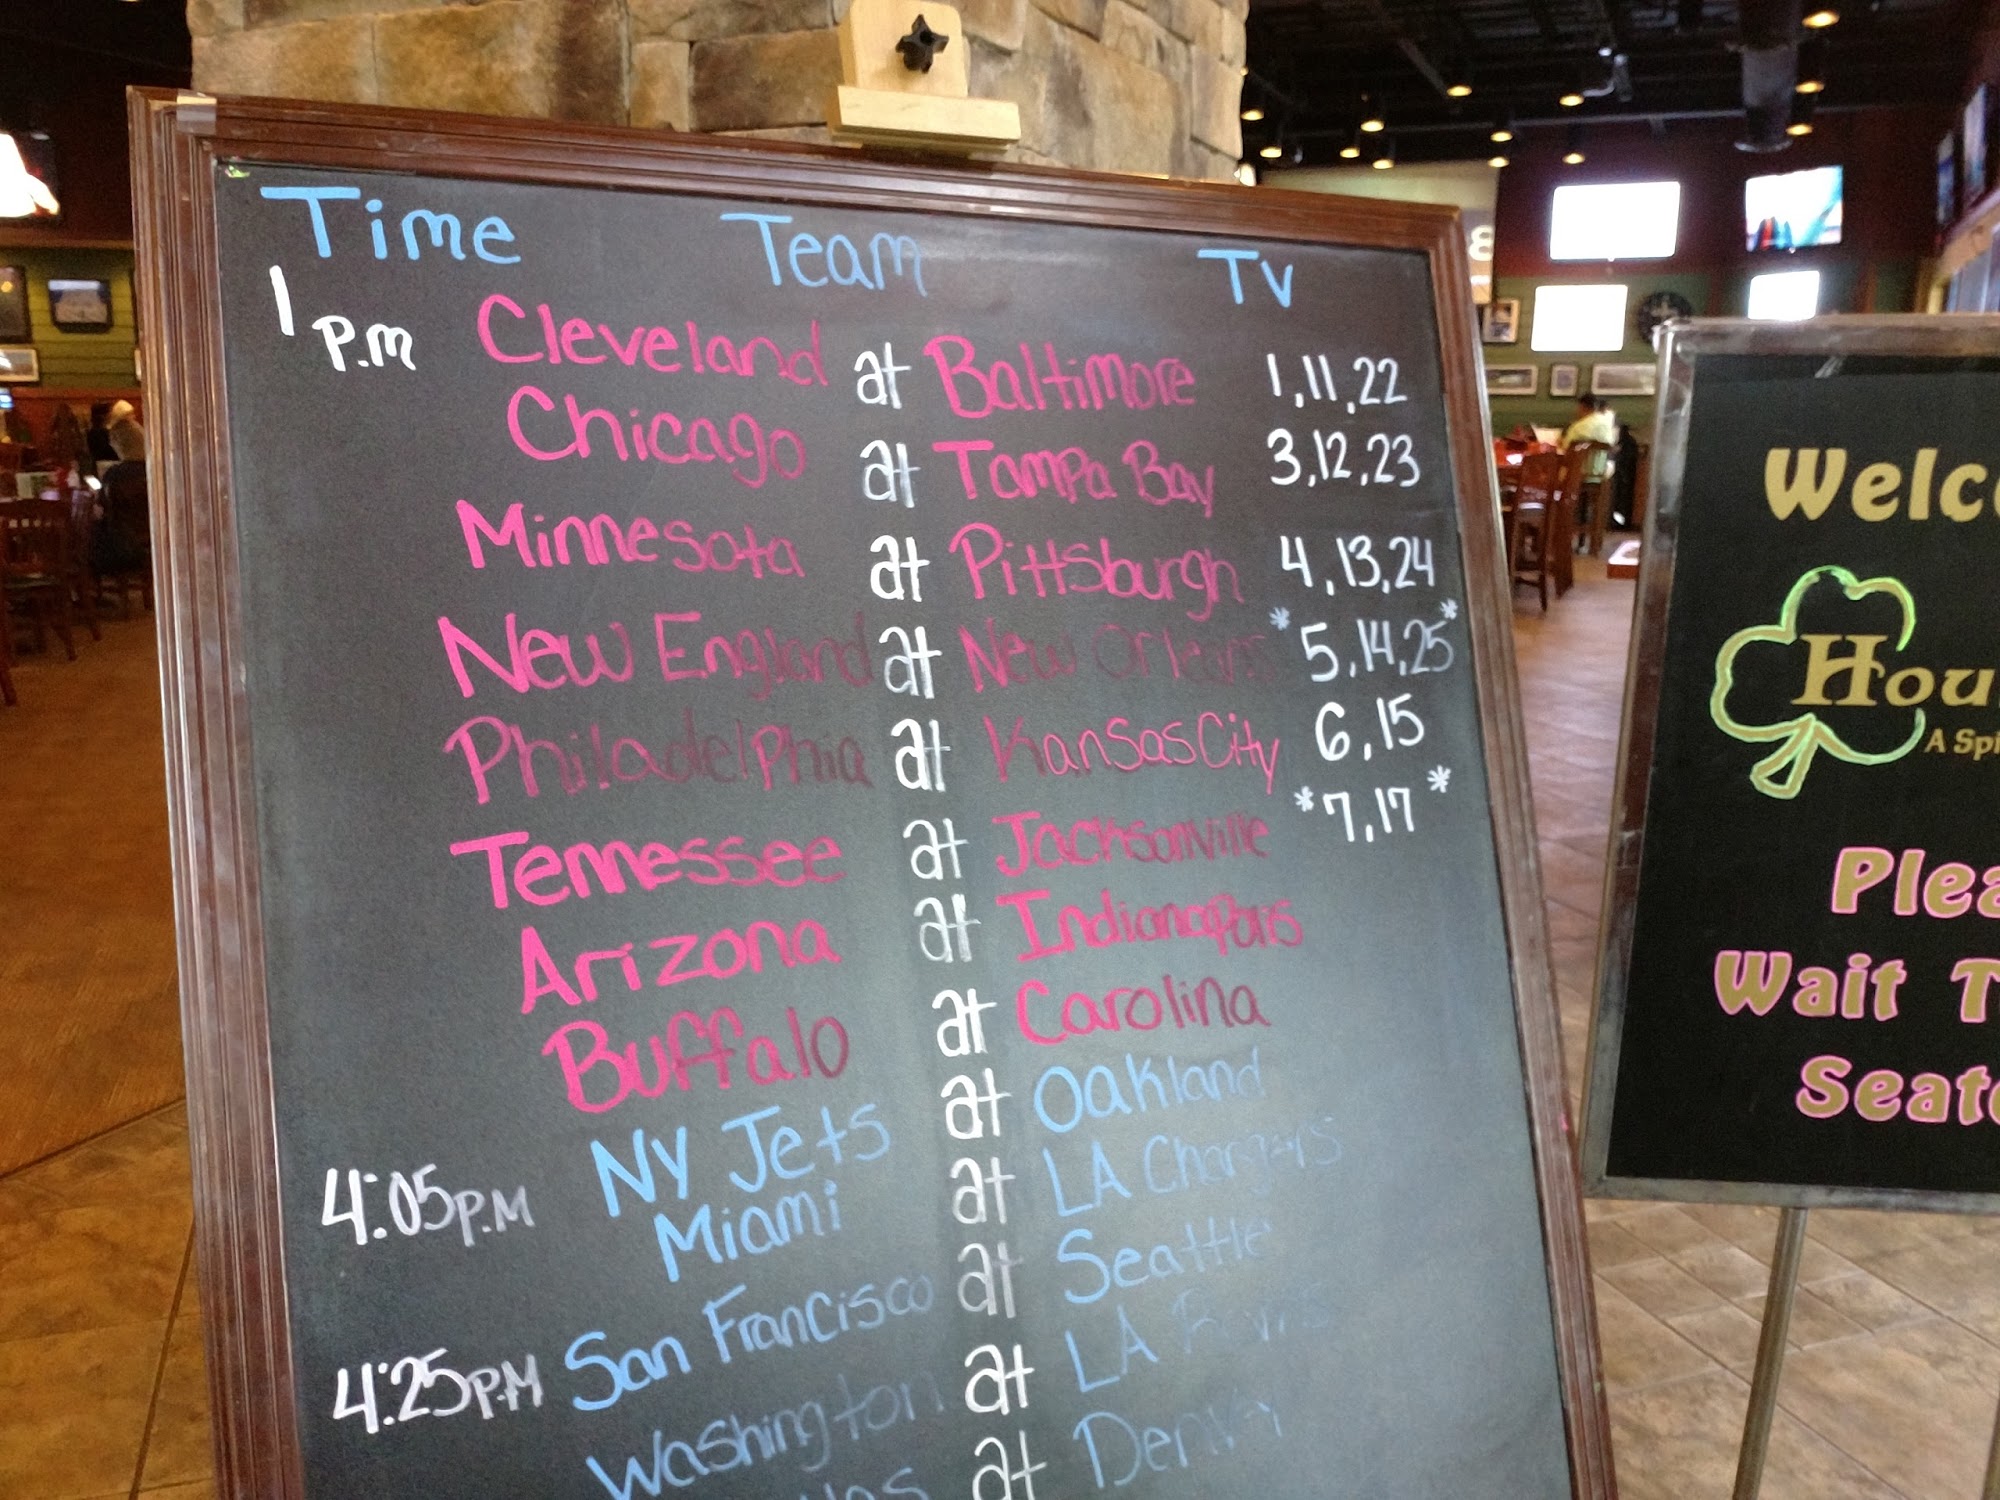 Time Team TV
1 P.M Cleveland at Baltimore 1,11,22
Chicago at Tampa Bay 3,12,23
Minnesota at Pittsburgh 4,13,24
New England at New Orleans *5,14,25*
Philadelphia at Kansas City 6,15
Tennessee at Jacksonville *7,17*
Arizona at Indianapolis
Buffalo at Carolina
NY Jets at Oakland
4:05 P.M Miami at LA Chargers
San Francisco at Seattle
4:25 P.M Washington at LA Rams
at Denver
Welc
Hou
A Spi
Plea
Wait T
Seate